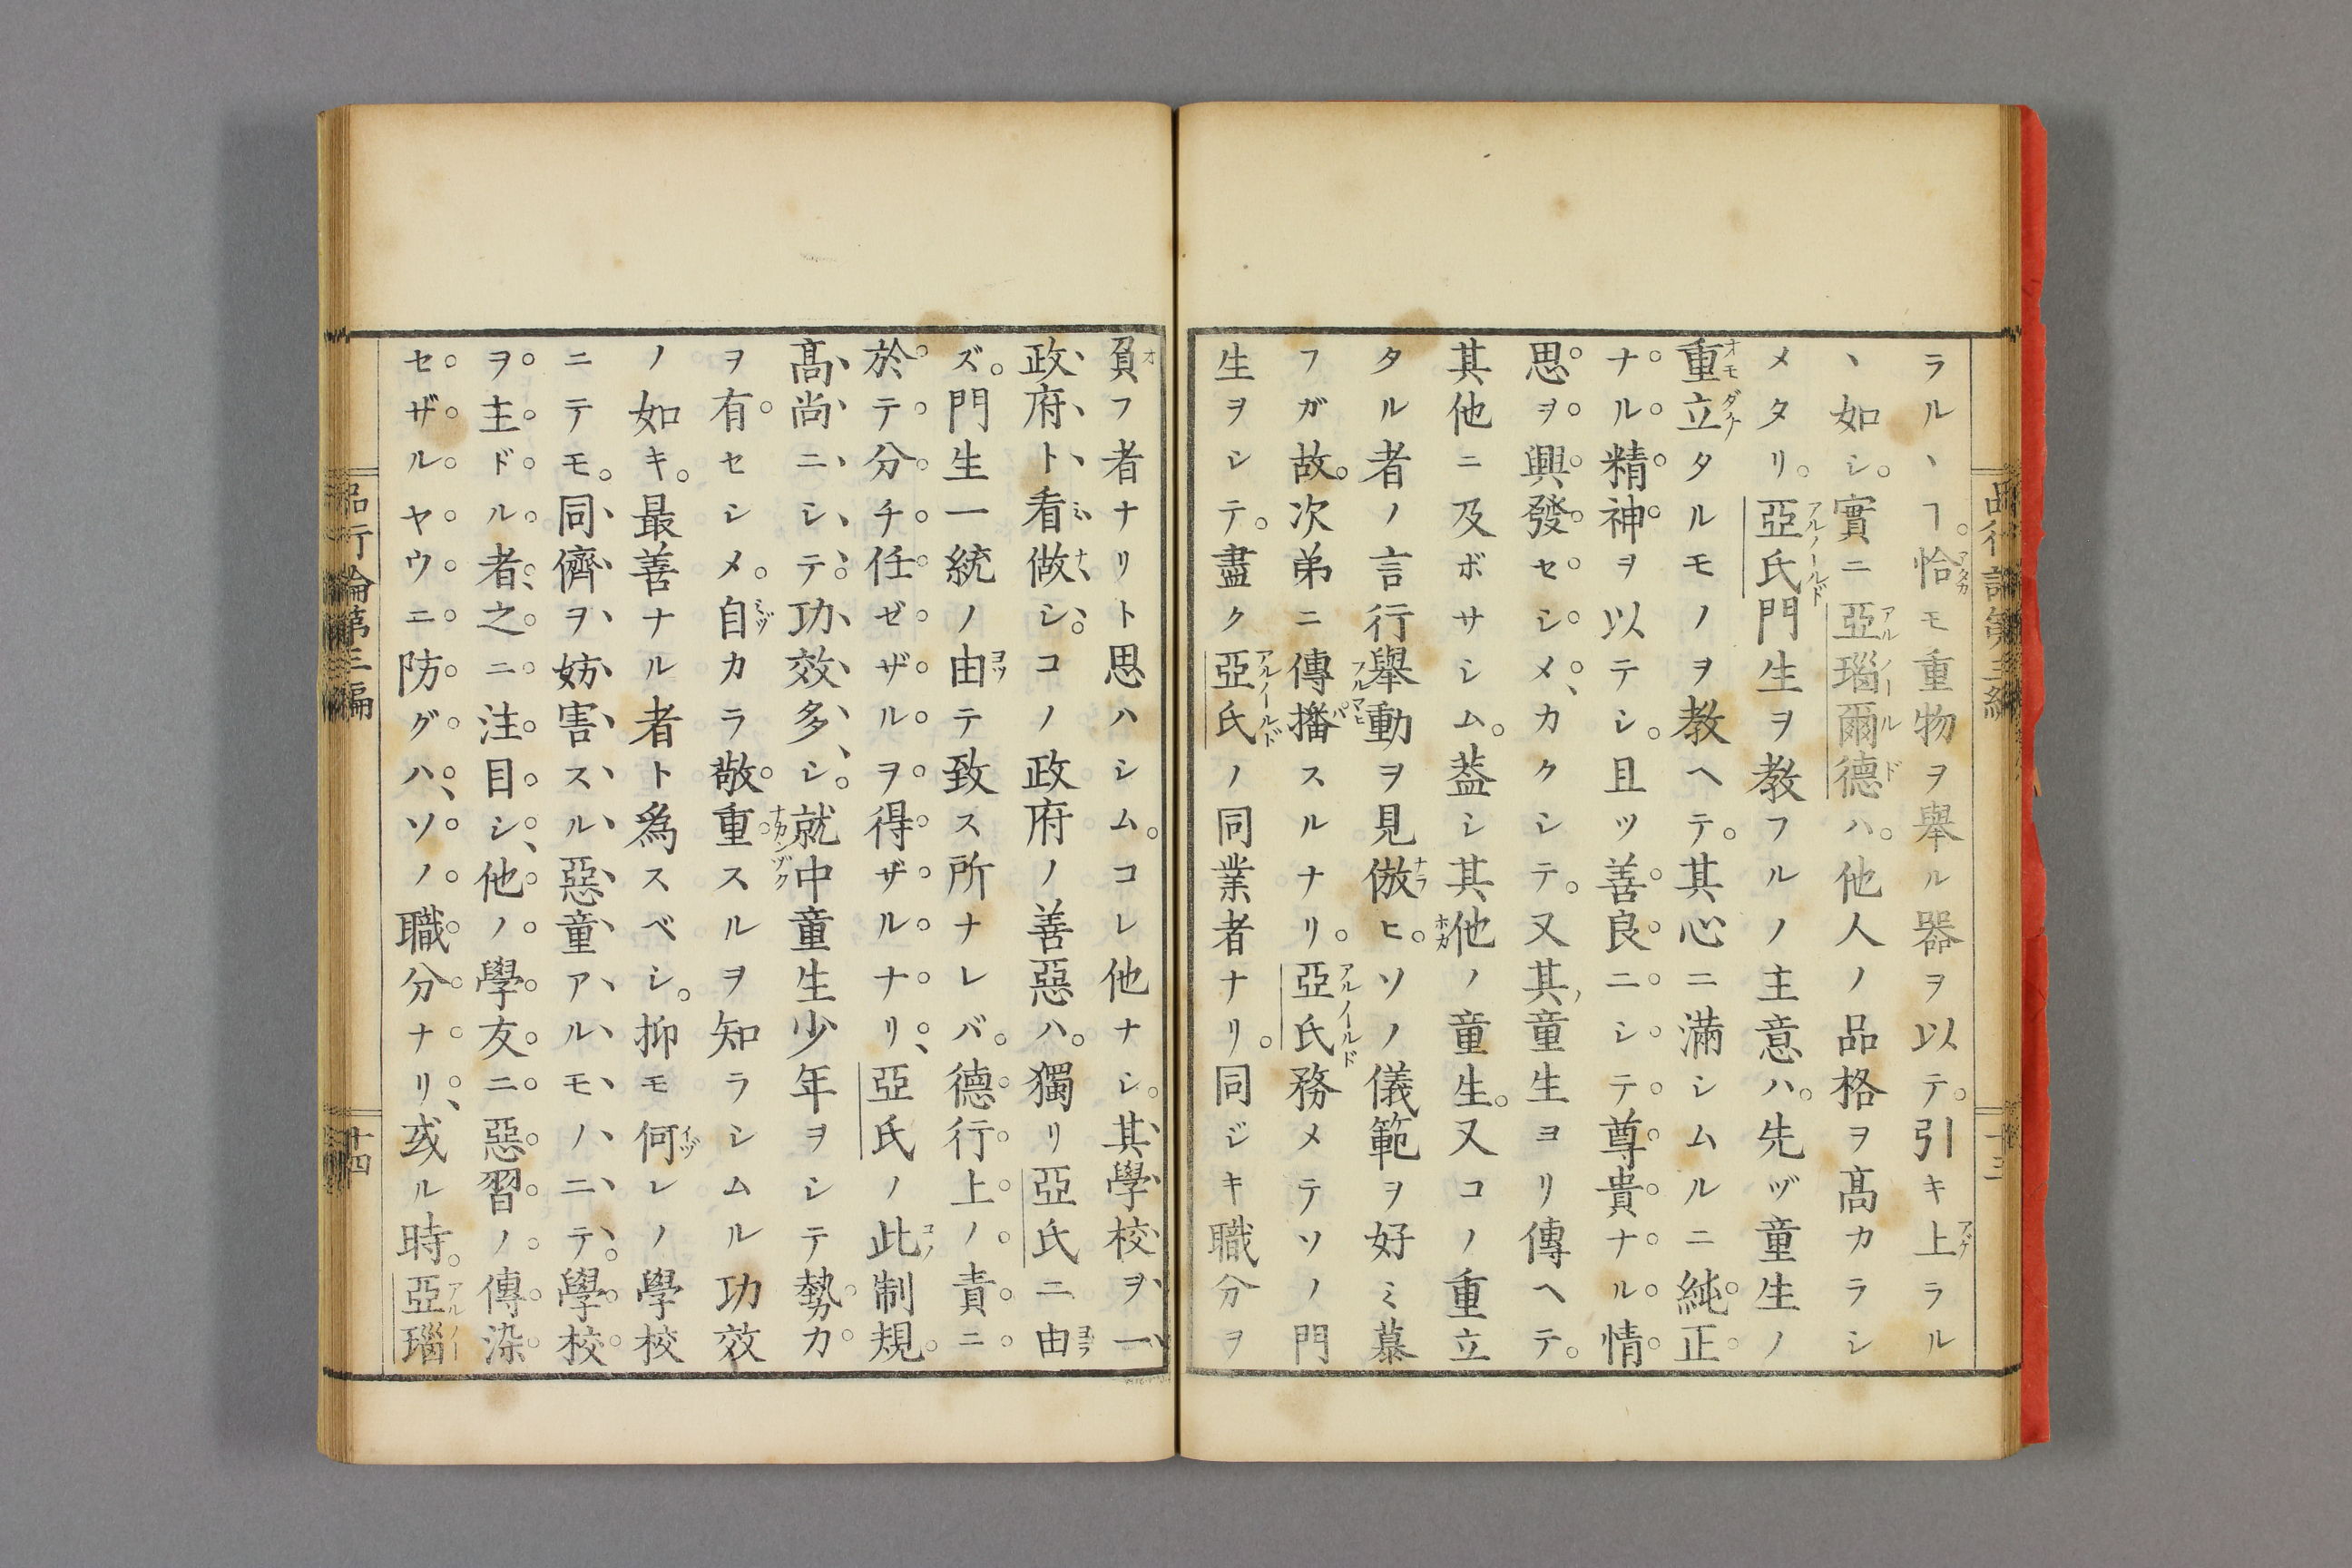 品行論第三編
十三
ラル丶ヿ。恰モ重物ヲ舉ル器ヲ以テ。引キ上ラル
丶如シ。實ニ亞瑙爾德ハ。他人ノ品格ヲ髙カラシ
メタリ。亞氏門生ヲ教フルノ主意ハ。先ヅ童生ノ
重立タルモノヲ教ヘテ。其心ニ滿シムルニ純正
ナル精神ヲ以テシ。且ツ善良ニシテ尊貴ナル情
思ヲ興發セシメ、カクシテ。又其童生ヨリ傳ヘテ。
其他ニ及ボサシム。葢シ其他ノ童生。又コノ重立
タル者ノ言行舉動ヲ見倣ヒ。ソノ儀範ヲ好ミ慕
フガ故。次弟ニ傳播スルナリ。亞氏務メテソノ門
生ヲシテ。盡ク亞氏ノ同業者ナリ。同ジキ職分ヲ
負フ者ナリト思ハシム。コレ他ナシ。其學校ヲ、一
政府ト看做シ。コノ政府ノ善惡ハ。獨リ亞氏ニ由
ズ。門生一統ノ由テ致ス所ナレバ。德行上ノ責ニ
於テ分チ任ゼザルヲ得ザルナリ、亞氏ノ此制規。
髙尚ニシテ。功效多シ。就中童生少年ヲシテ勢カ
ヲ有セシメ。自カラ敬重スルヲ知ラシムル功效
ノ如キ。最善ナル者ト爲スベシ。抑モ何レノ學校
ニテモ。同儕ヲ妨害スル惡童アルモノニテ。學校
ヲ主ドル者、之ニ注目シ、他ノ學友ニ惡習ノ傳染
セザルヤウニ防グハ、ソノ職分ナリ、或ル時。亞瑙
品行論第三編
十四